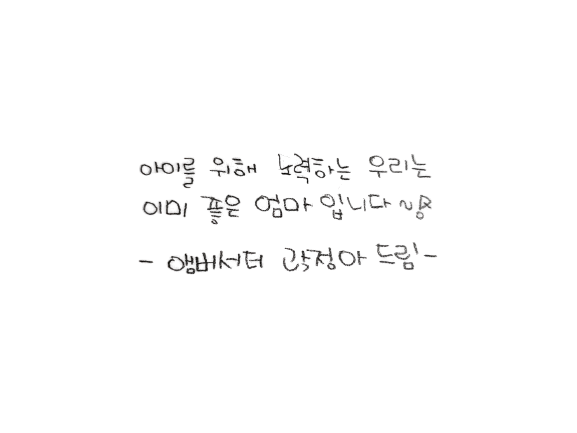 아이를 위해 노력하는 우리는
이미 좋은 엄마 입니다~용
- 앰버서터 곽정아 드림-